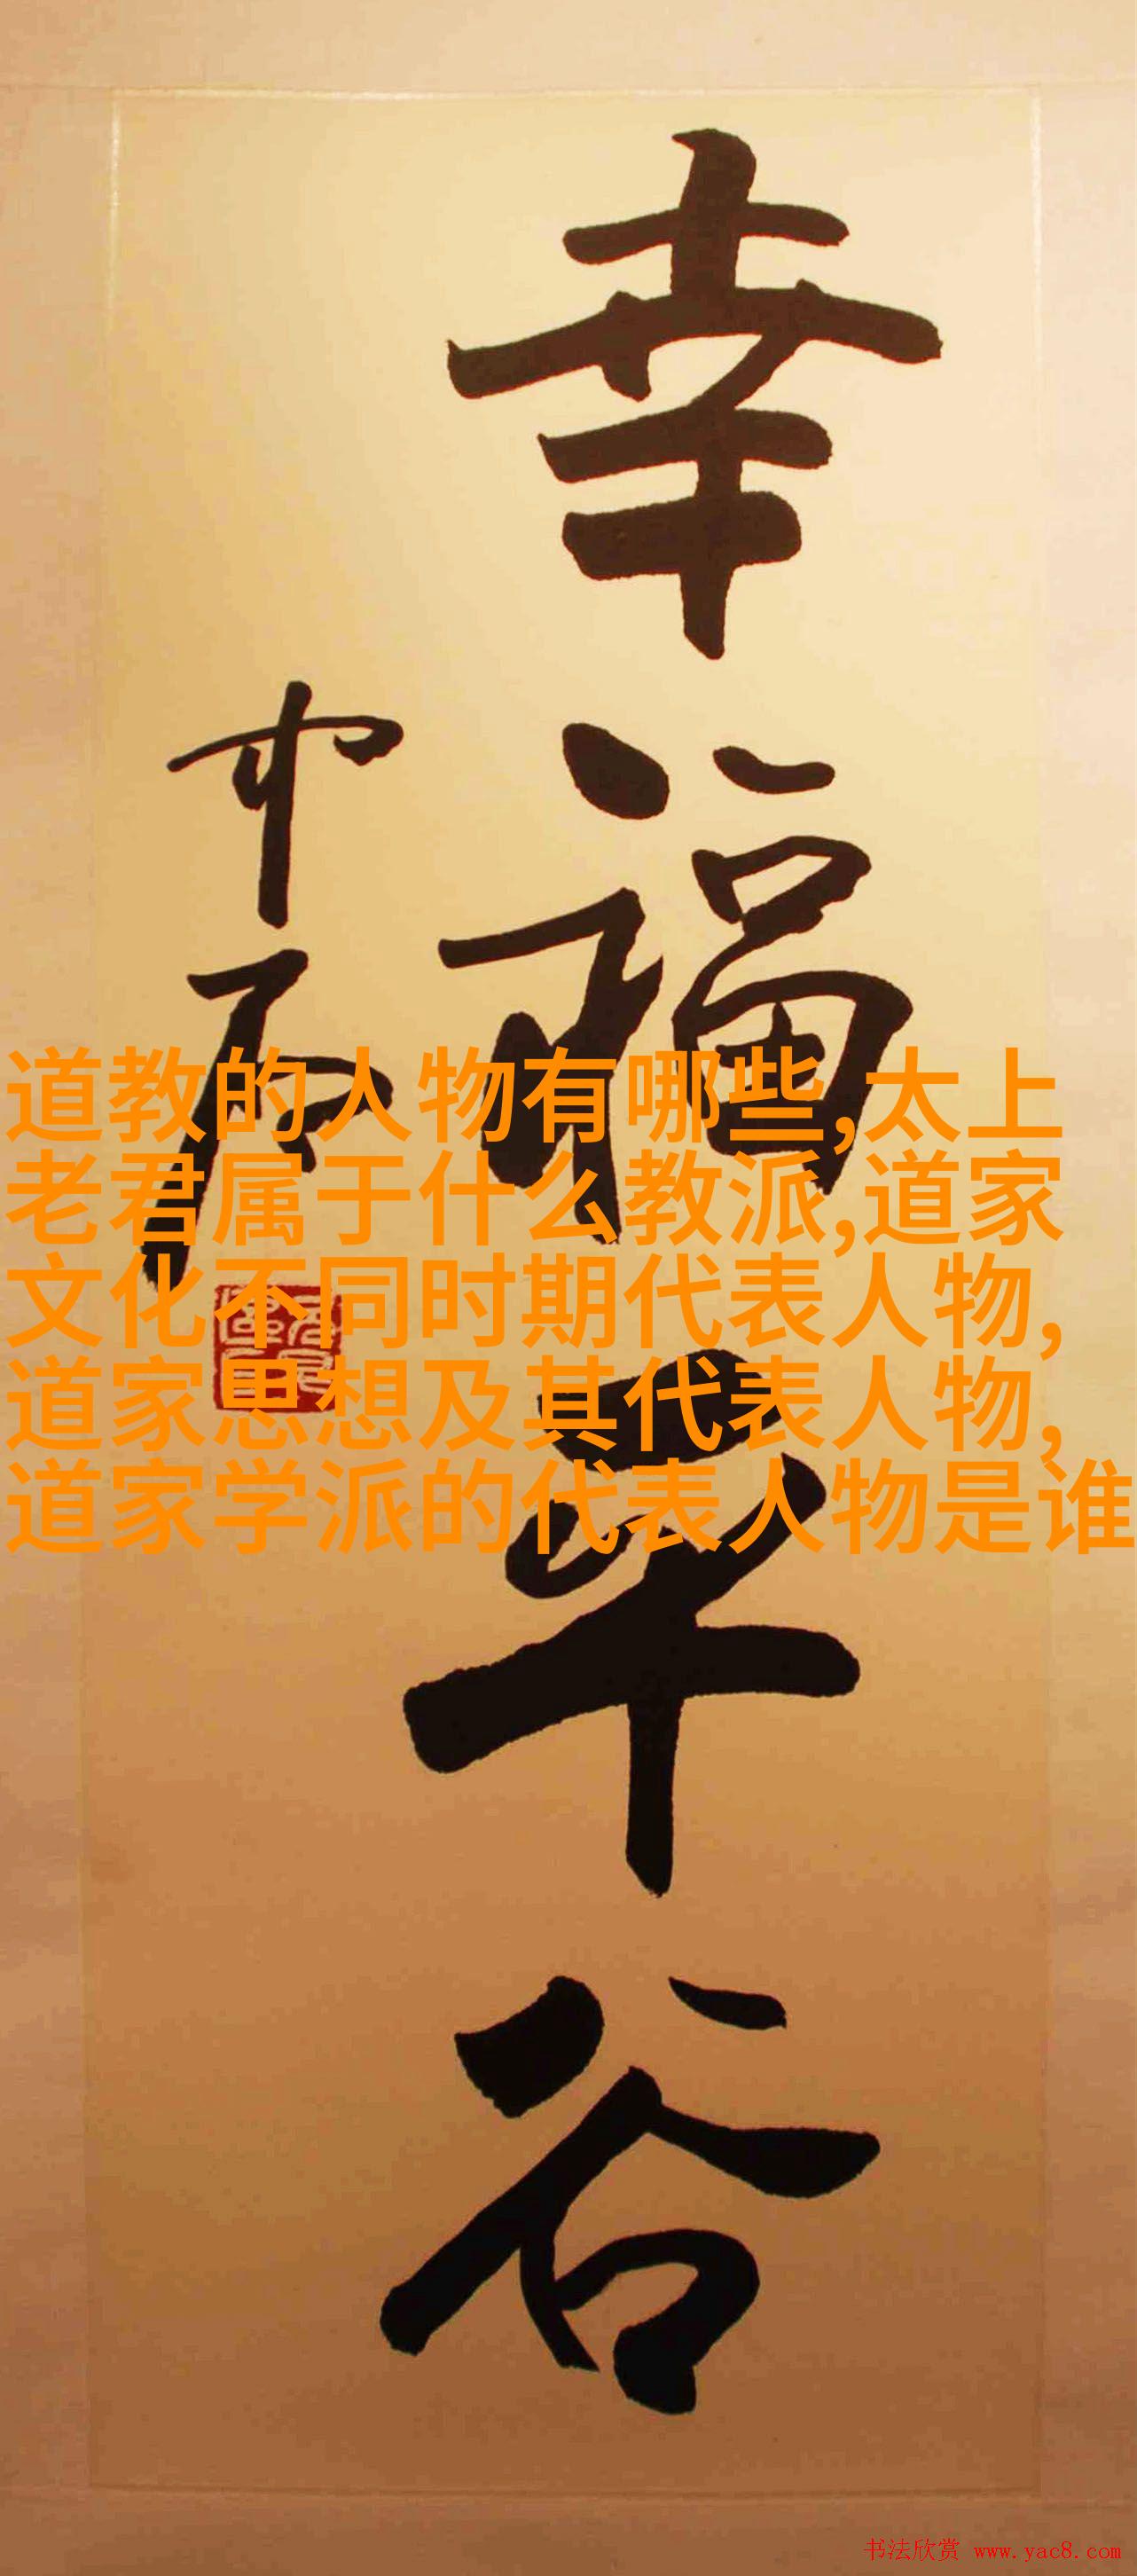 幸福平谷
中石
道教的人物有哪些,太上
老君属于什么教派,道家
文化不同时期代表人物,
道家思想及其代表人物,
道家学派的代表人物是谁
书法欣赏 www.yac8.com